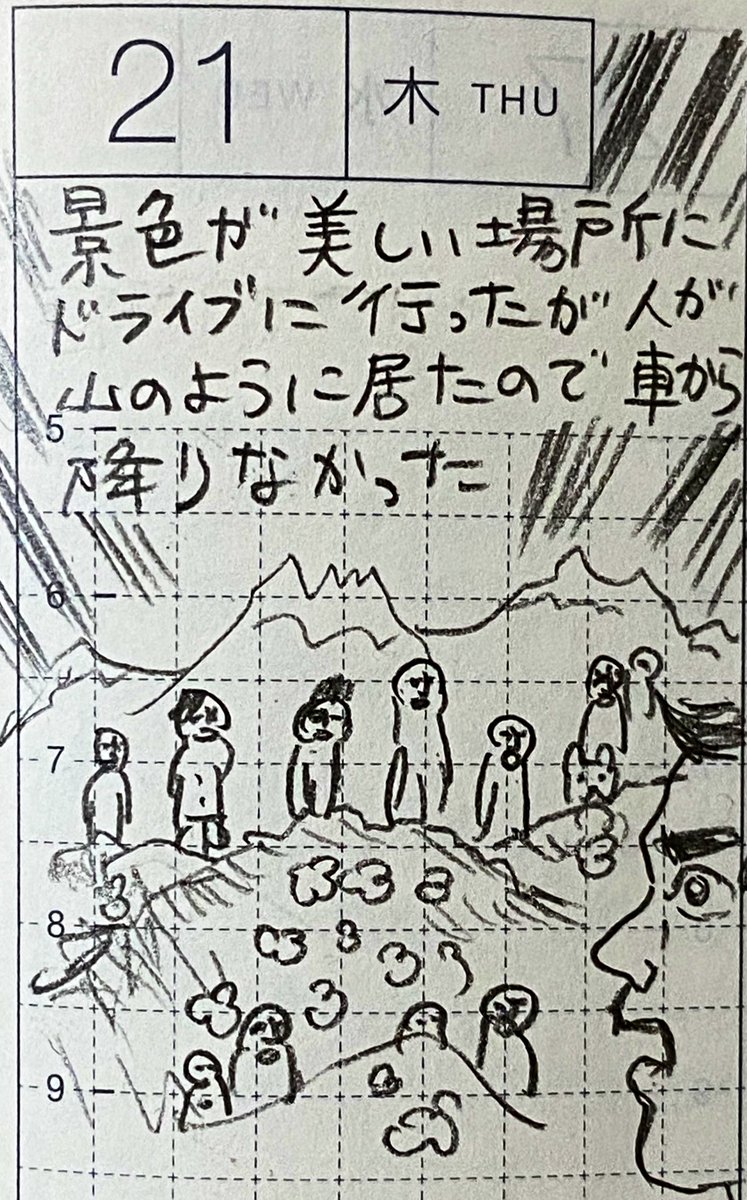 21 木 THU
景色が美しい場所に
ドライブに行ったが人が
山のように居たので車から
降りなかった
5
6
7
8
9